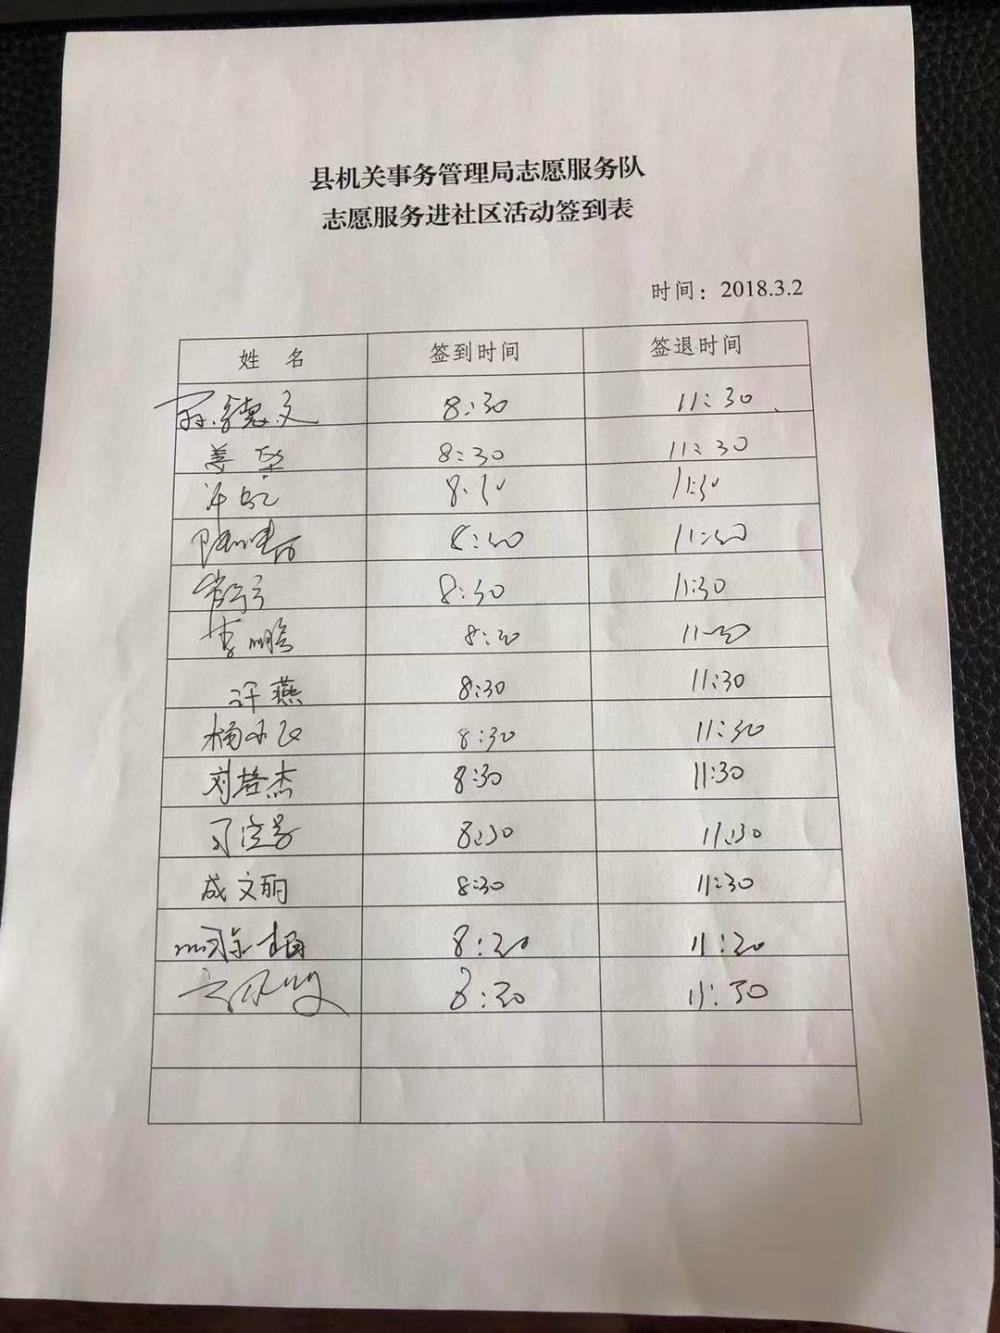 县机关事务管理局志愿服务队
志愿服务进社区活动签到表
时间：2018.3.2
姓 名 签到时间 签退时间
孙德文 8:30 11:30
姜 8:30 11:30
许虹 8:30 11:30
8:30 11:30
8:30 11:30
李鹏 8:30 11:30
许燕 8:30 11:30
杨小飞 8:30 11:30
刘培杰 8:30 11:30
8:30 11:30
成文丽 8:30 11:30
8:20 11:20
8:30 11:30